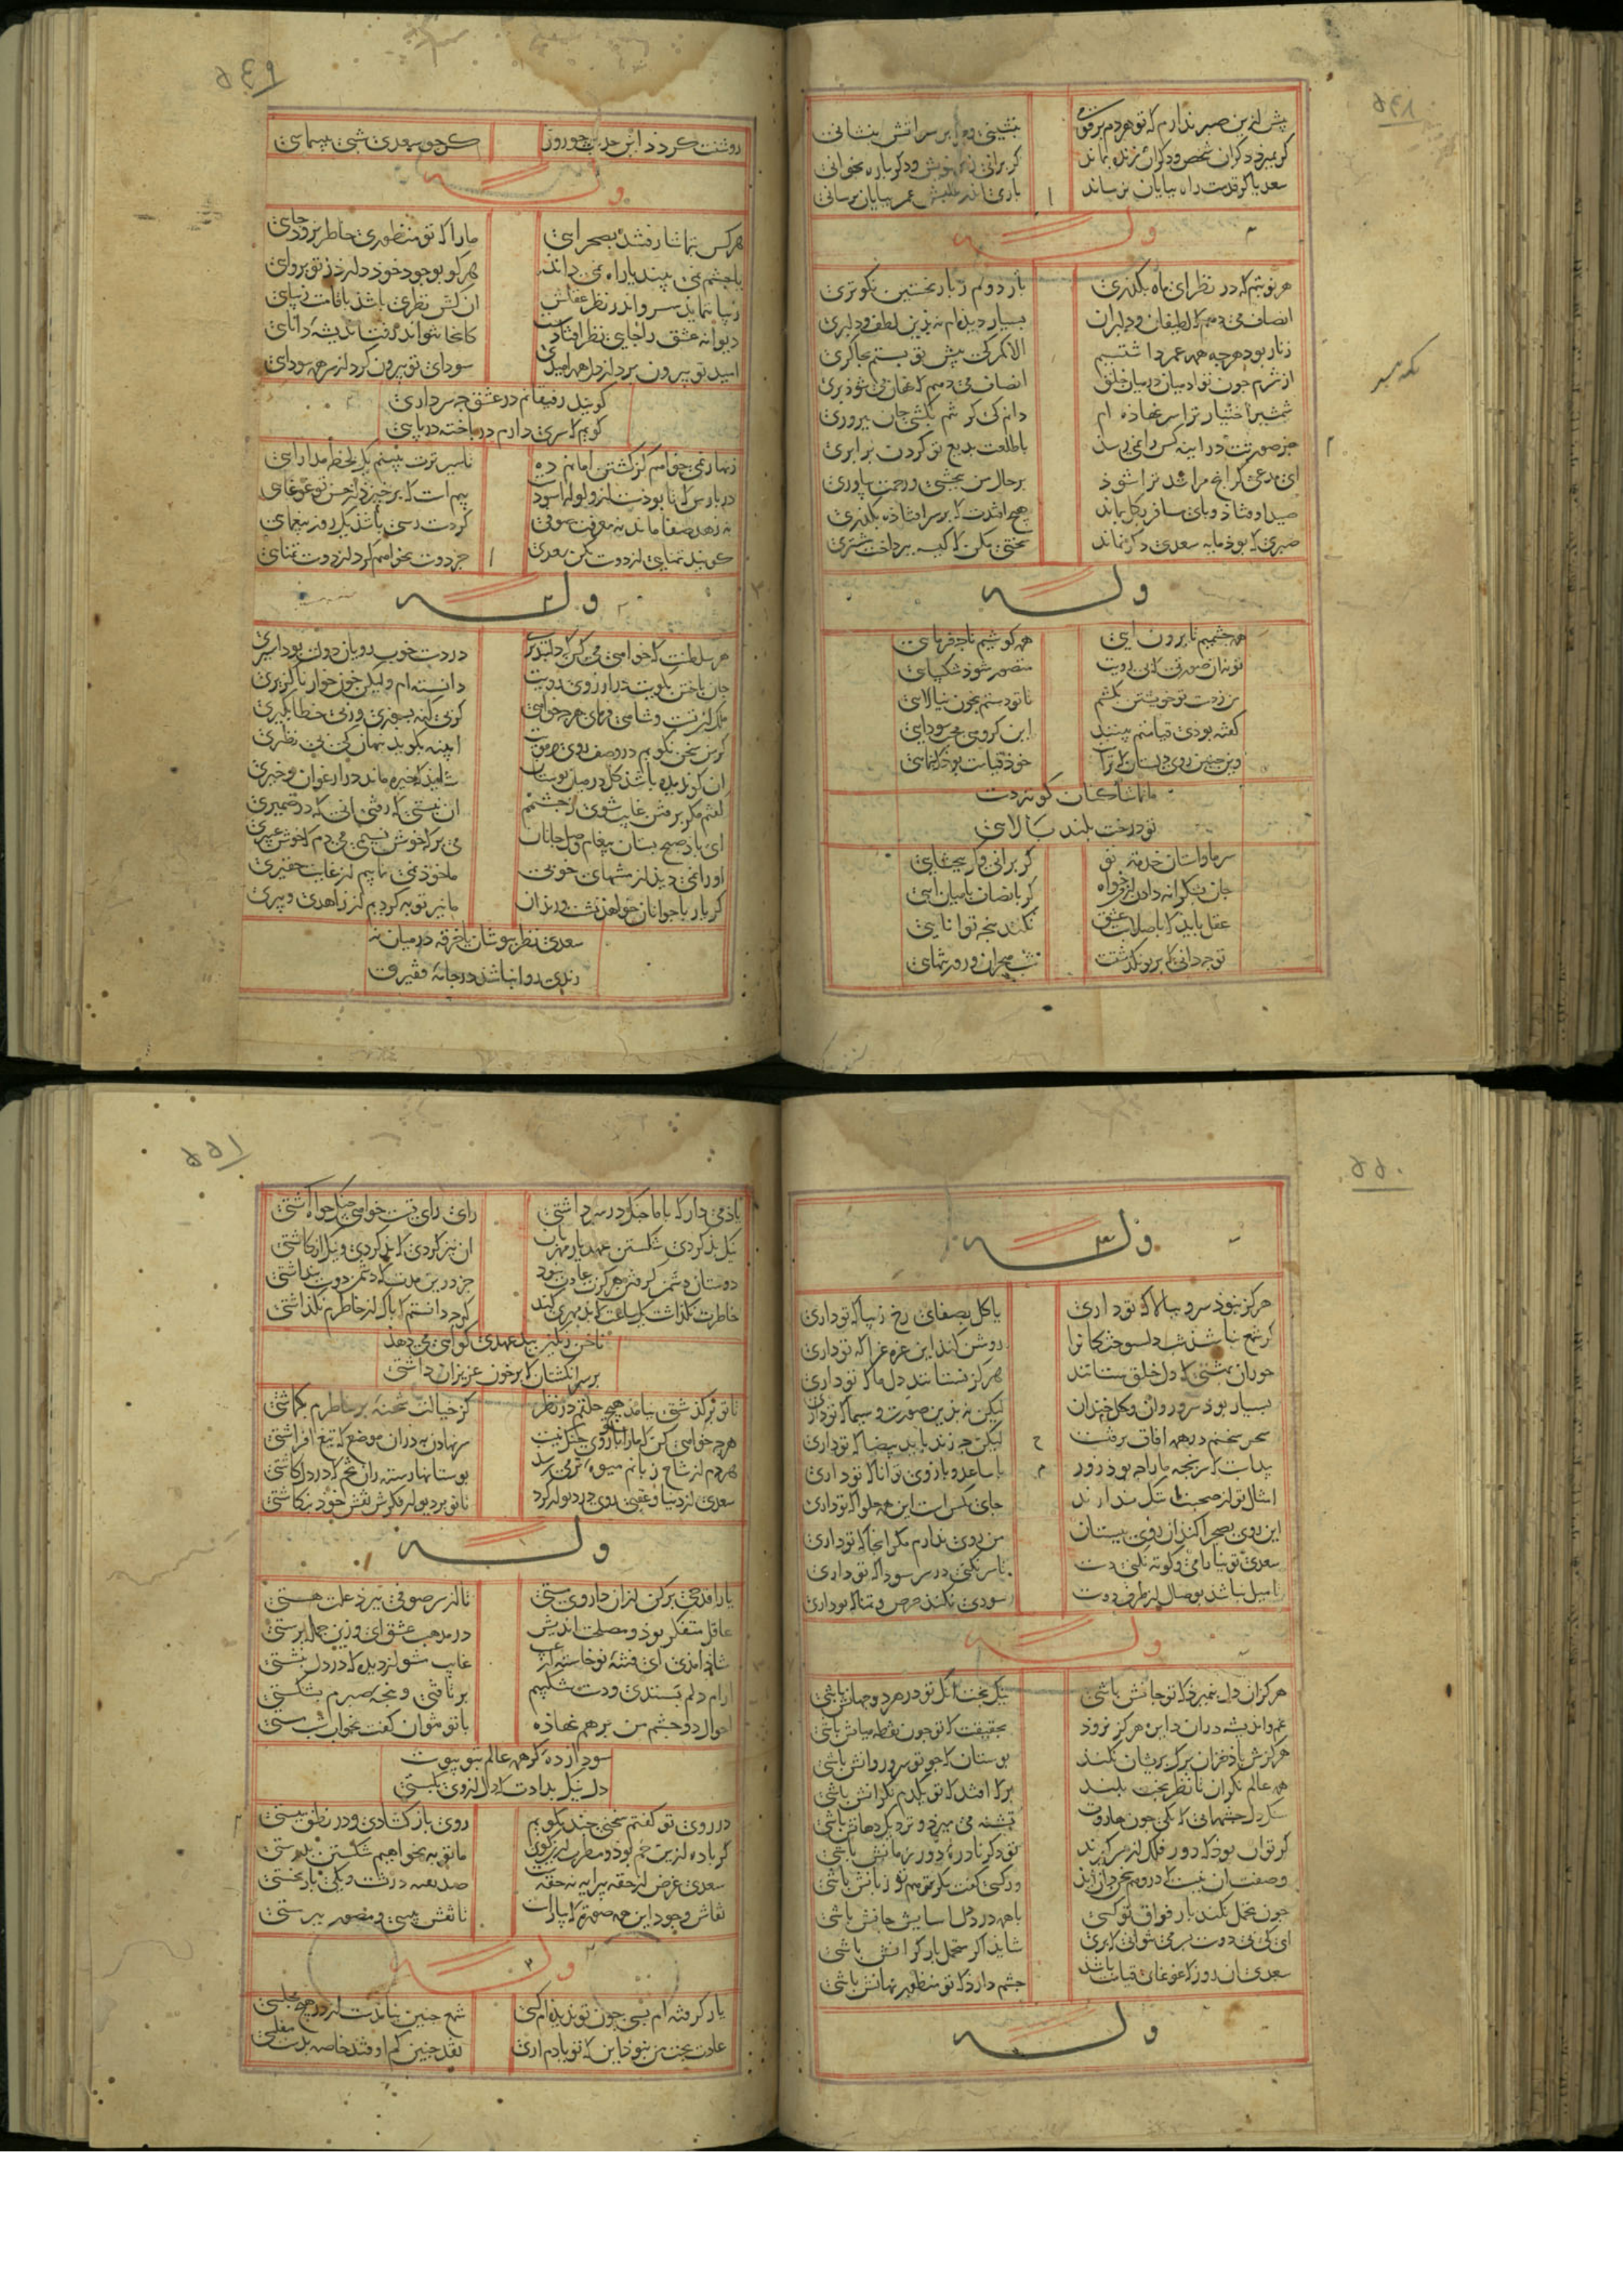 پیش ازین صبر ندارم که تو هر دم بر قومی
بنشینی و مرا بر سر آتش بنشانی
کر بمیرد دکران شخص و دکران زنده بماند
کر برانی ز بر خویش و دکر باره بخوانی
سعدیا کر قدمت راه بپایان نرساند
باری اندر طلبش عمر بپایان برسانی
وله
هر نوبتم که در نظر ای ماه بکذری
بار دوم ز بار نخستین نکوتری
انصاف می دهم که لطیفان و دلبران
بسیار دیده ام نه بدین لطف و دلبری
زنار بود هر چه همه عمر داشتیم
الا کمر که پیش تو بستم بچاکری
از شرم چون تو ادمیان در میان خلق
انصاف می دهم که نهان می شود بری
شمشیر اختیار ترا سر نهاده ام
دانم که کر تنم بکشی جان بپروری
جز صورتت در اینه کس را نمی رسد
با طلعت بدیع تو کردن برابری
ای مدعی کر انچ مرا شد ترا شود
بر حال من ببخشی و رحمت بیاوری
صید اوفتاد و پای مسافر بکل بماند
هیچ افتدت که بر سر افتاده بکذری
صبری که بود مایه سعدی دکر نماند
سختی مکن که کیسه بپرداخت مشتری
وله
همه چشمیم تا برون ایی
همه کوشیم تا چه فرمایی
تو نه ان صورتی که بی رویت
متصور شود شکیبایی
من ز دست تو خویشتن بکشم
تا تو دستم بخون نیالایی
کفته بودی قیامتم بینند
این کروهی محب سودایی
وین چنین روی دلستان که تراست
خود قیامت بود که بنمایی
ما تماشاکنان کوته دست
تو درخت بلند بالایی
سر ما و استان خدمت تو
کر برانی و کر ببخشایی
جان بشکرانه دادن از من خواه
کر بانصاف با میان ایی
عقل باید که با صلابت عشق
نکند پنجه توانایی
تو چه دانی که بر تو نکذشتست
شب هجران و روز تنهایی
روشنت کردد این حدیث چو روز
کر چو سعدی شبی بپیمایی
وله
هر کس بتماشا رفتند بصحرایی
ما را که تو منظوری خاطر نرود جایی
یا چشم نمی بیند یا راه نمی داند
هر کو بوجود خود دارد ز تو پروایی
زیبا ننماید سرو اندر نظر عقلش
ان کش نظری باشد با قامت زیبایی
دیوانه عشقت را جایی نظر افتادست
کانجا نتواند رفت اندیشه دانایی
امید تو بیرون برد از دل همه امیدی
سودای تو بیرون کرد از سر همه سودایی
کویند رفیقانم در عشق چه سر داری
کویم که سری دارم درباخته در پایی
زنهار نمی خواهم کز کشتن امانم ده
تا سیرترت بینم یک لحظه مدارایی
در پارس که تا بودست از ولوله اسودست
بیم است که برخیزد از حسن تو غوغایی
نه زهد و صفا ماند نه معرفت صوفی
کر دست رسی باشد یک روز بیغمایی
کویند تمنایی از دوست بکن سعدی
جز دوست نخواهم کرد از دوست تمنایی
وله
هر سلطنت که خواهی می کن که دلپذیری
در دست خوب رویان دولت بود اسیری
جان باختن بکویت در ارزوی رویت
دانسته ام ولیکن خون خوار ناکزیری
ملک ان تست و شاهی فرمای هر چه خواهی
کر بی کنه بسوزی ور بی خطا بکیری
کر من سخن نکویم در وصف روی و مویت
ایینه بکوید پنهان که بی نظیری
ان کو ندیده باشد کل در میان بستان
شاید که خیره ماند در ارغوان و خیری
کفتم مکر برفتن غایب شوی ز چشمم
ان نیستی که رفتی انی که در ضمیری
ای باد صبح بستان پیغام وصل جانان
می رو که خوش نسیمی می دم که خوش عبیری
او را نمی توان دید از منتهای خوبی
ما خود نمی نماییم از غایت حقیری
کر یار با جوانان خواهد نشست و رندان
ما نیز توبه کردیم از زاهدی و پیری
سعدی نظر بپوشان یا خرقه در میان نه
رندی روا نباشد در جامه فقیری
وله
هرکز نبود سرو ببالا که تو داری
یا کل بصفای رخ زیبا که تو داری
کر شمع نباشد شب دلسوختکان را
روشن کند این غره غرا که تو داری
حوران بهشتی که دل خلق ستانند
هرکز نستانند دل ما که تو داری
بسیار بود سرو روان و کل خندان
لیکن نه بدین صورت و سیما که تو داری
سحر سخنم در همه افاق برفتست
لیکن چه زند با ید بیضا که تو داری
پیداست که سرپنجه ما را چه بود زور
با ساعد و بازوی توانا که تو داری
امثال تو از صحبت ما ننک ندارند
جای مکس است این همه حلوا که تو داری
این روی بصحرا کند ان روی ببستان
من روی ندارم مکر انجا که تو داری
سعدی تو نیارامی و کوته نکنی دست
تا سر نکنی در سر سودا که تو داری
تا میل نباشد بوصال از طرف دوست
سودی نکند حرص و تمنا که تو داری
وله
هرکز ان دل نمیرد که تو جانش باشی
نیک بخت انک تو در هر دو جهانش باشی
غم و اندیشه در ان دایره هرکز نرود
بحقیقت که تو چون نقطه میانش باشی
هرکزش باد خزان برک پریشان نکند
بوستان که چو تو سرو روانش باشی
همه عالم نکران تا نظر بخت بلند
بر که افتد که تو یک دم نکرانش باشی
تشنکان لب ای چشمه حیوان مردند
تشنه می میرد و نزدیک دهانش باشی
کر توان بود که دور فلک از سر کیرند
تو دکر نادره دور زمانش باشی
وصفت ان نیست که در وهم سخندان اید
ور کسی کفت مکر هم تو زبانش باشی
چون تحمل نکند بار فراق تو کسی
با همه درد دل اسایش جانش باشی
ای که بی دوست بسر می نتوانی که بری
شاید ار محتمل بار کرانش باشی
سعدی ان روز که غوغای قیامت باشد
چشم دارد که تو منظور نهانش باشی
وله
یاد می دار که با ما جنک در سر داشتی
رای رای تست خواهی جنک خواه اشتی
نیک بد کردی شکستن عهد یار مهربان
ان بتر کردی که بد کردی و نیک انکاشتی
دوستان دشمن کرفتن هرکزت عادت نبود
جز درین مدت که دشمن دوست پنداشتی
خاطرت نکذاشت یک ساعت که بد مهری کند
کر چه دانستم که پاک از خاطرم نکذاشتی
ناخن رنکین بد عهدی کواهی می دهد
بر سر انکشتان که بر خون عزیزان داشتی
تا تو برکذشتی نیامد هیچ خلقم در نظر
کز خیالت شحنه بر خاطرم بکماشتی
هر چه خواهی کن که ما را با تو روی جنک نیست
سر نهادن به در ان موضع که تیغ افراشتی
هر دم از شاخ زبانم میوه تر می رسد
بوستانها رسته زان تخم که در دل کاشتی
سعدی از دنیا و عقبی روی در دیوار کرد
تا تو بر دیوار فکرش نقش خود بنکاشتی
وله
یارا قدحی پر کن از ان داروی مستی
تا از سر صوفی بپرد علت هستی
عاقل متفکر بود و مصلحت اندیش
در مذهب عشق ای و ازین جمله برستی
شاد امدی ای فتنه نو خاسته از غیب
غایب مشو از دیده که در دل بنشستی
ارام دلم بستدی و دست شکیبم
برتافتی و پنجه صبرم بشکستی
احوال دو چشم من بر هم ننهاده
با تو نتوان کفت بخواب شب مستی
سودازده کز همه عالم بتو پیوست
دل نیک بدادت که دل از وی بکسستی
در روی تو کفتم سخنی چند بکویم
روی باز کشادی و در نطق ببستی
کر باده ازین خم بود و مطرب ازین کوی
ما توبه بخواهیم شکستن بدرستی
سعدی غرض از حقه پیرایه نه حقه
نقاش وجود این همه صورت که بپرداخت
تا نقش ببینی و مصور بپرستی
وله
یار کرفته ام بسی چون تو ندیده ام کسی
شمع چنین نیامدست از در هیچ مجلسی
عادت بخت من نبود این که تو یادم اری
نقد چنین کم اوفتد خاصه بدست مفلسی